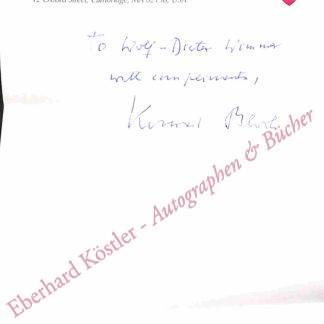 12 Oxford Street, Cambridge, MA 02138, USA
To Wolf-Dieter Wimmer
with compliments,
Konrad Bloch
Eberhard Köstler - Autographen & Bücher